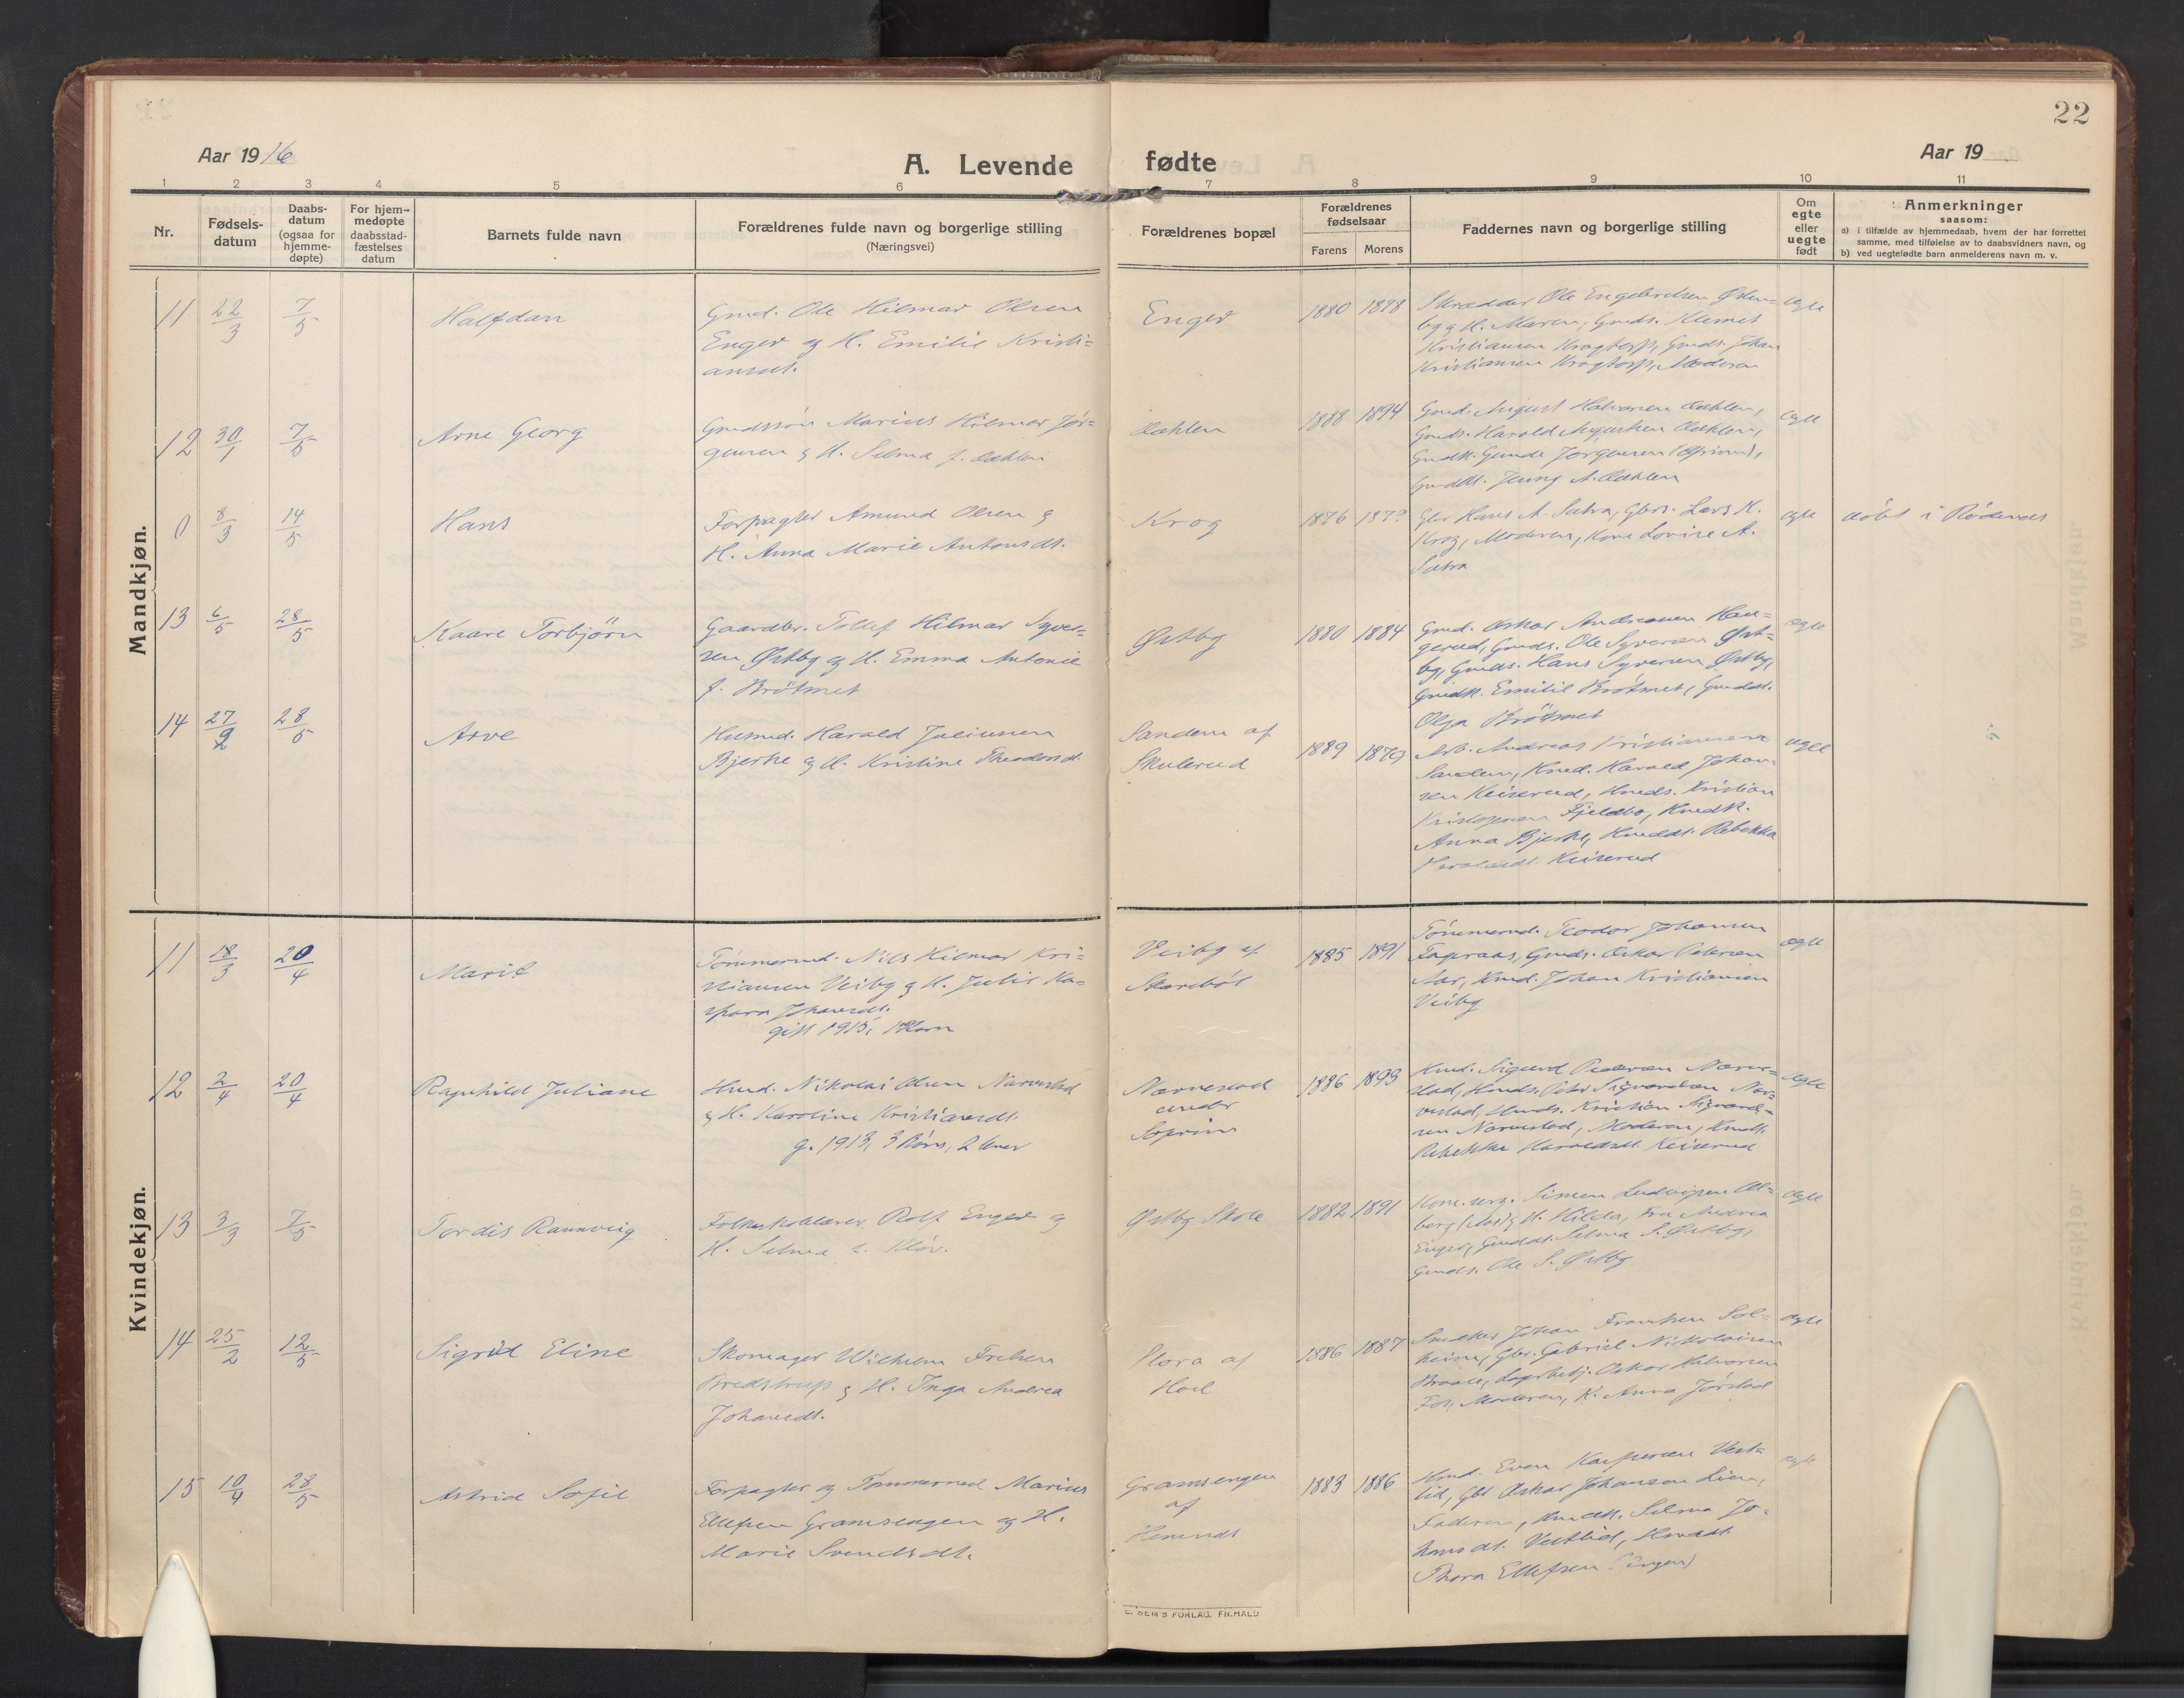 22
Aar 1916
A. Levende fødte
Aar 19
1 2 3 4 5 6 7 8 9 10 11
Nr.
Fødsels-
datum
Daabs-
datum
(ogsaa for
hjemme-
døpte)
For hjem-
medøpte
daabsstad-
fæstelses
datum
Barnets fulde navn
Forældrenes fulde navn og borgerlige stilling
(Næringsvei)
Forældrenes bopæl
Forældrenes
fødselsaar
Farens Morens
Faddernes navn og borgerlige stilling
Om
egte
eller
uegte
født
Anmerkninger
saasom:
a) i tilfælde av hjemmedaab, hvem der har forrettet
samme, med tilføielse av to daabsvidners navn, og
b) ved uegtefødte barn anmelderens navn m. v.
Mandkjøn.
11 22/3 7/5 Halfdan
Gmd. Ole Hilmar Olsen
Enger og H. Emilie Kristi=
ansdt.
Enger
1880 1878
Skrædder Ole Engebretsen Østen=
by & H. Maren, Gmds. Klemet
Kristiansen Krogtorp, Gmds. Johan
Kristiansen Krogtorp, Moderen
egte
12 30/1 7/5 Arne Georg
Gmdssøn Marius Hilmar Jør=
gensen & H. Selma f. Dahlen
Dahlen
1888 1894
Gmd. August Halvorsen Dahlen,
Gmds. Harald Augustsen Dahlen,
Gmdk. Gunda Jørgensen
Gmddt. Jenny A. Dahlen
egte
0 8/3 14/5 Hans
Forpagter Amund Olsen &
H. Anna Marie Antonsdt.
Krog
1876 187?
Gbr Hans A. Sætra, Gbrs. Lars K.
Krog, Moderen, Kone Lovise A.
Sætra
egte
døbt i Rødenes
13 6/5 28/5 Kaare Torbjørn
Gaardbr. Tollef Hilmar Syver=
sen Østby og H. Emma Antonie
f. Brøtmet
Østby
1880 1884
Gmd. Oskar Andreassen Hau=
gerud, Gmds. Ole Syversen Øst=
by, Gmds. Hans Syversen Østby,
Gmdk. Emilie Brøtmet, Gmddt.
Olga Brøtmet
egte
14 27/2 28/5 Arve
Husmd. Harald Juliussen
Bjerke og H. Kristine Theodorsd.
Sanden af
Skulerud
1889 1879
Arb. Andreas Kristiansen
Sanden, Hmd. Harald Johan=
sen Keiserud, Hmds. Kristian
Kristoffersen Fjeldbo, Hmdk.
Anna Bjerke, Hmddt. Rebekka
Haraldsdt. Keiserud
egte
Kvindekjøn.
11 18/3 20/4 Marit
Tømmermd. Nils Hilmar Kri=
stiansen Veiby & H. Julie Ka=
spara Johansdt.
gift 1915, 1 Barn
Veiby af
Skarebøl
1885 1891
Tømmermd. Teodor Johansen
Fageraas, Gmds. Oskar Petersen
Aar, Hmd. Johan Kristiansen
Veiby
egte
12 2/4 20/4 Ragnhild Juliane
Hmd. Nikolai Olsen Narvestad
& H. Karoline Kristiansdt.
g. 1913, 3 Børn, 2 lever
Narvestad
under
Soprim
1886 1893
Hmd. Sigurd Pedersen Narve=
stad, Hmds. Peter Sigvardsen Nar=
vestad, Hmds. Kristian Sigvard=
sen Narvestad, Moderen, Hmdt.
Rebekka Haraldsdt. Keiserud
egte
13 3/3 7/5 Tordis Rannveig
Folkeskolelærer Rolf Enger og
H. Selma f. Kløv.
Østby Skole
1882 1891
Simen Ludvigsen Ul=
berg (Aas) & H. Hilda, Fru Andrea
Enger, Gmddt. Selma S. Østby,
Gmds. Ole S. Østby
egte
14 25/2 12/5 Sigrid Eline
Skomager Wilhelm Frelsen
Bredstrup & H. Inga Andrea
Johansdt.
Flora af
Hoel
1886 1887
Snedker Johan Frantsen Sol=
heim, Gbr. Gabriel Nikolaisen
Braate, Lagerbetj. Oskar Halvorsen
Fos, Moderen, K. Anna Jørstad
egte
15 10/4 28/5 Astrid Sofie
Forpagter og Tømmermd Marius
Ellefsen Gramsengen og H.
Marie Svendsdt.
Gramsengen
af
Hemnes
1883 1886
Hmd. Even Kaspersen Vest=
lid, Gbr Oskar Johansen Lien,
Faderen, Hmdk. Selma Jo=
hansdt. Vestlid, Hmddt.
Thora Ellefsen (Engen)
egte
E. SEM'S FORLAG, FR.HALD